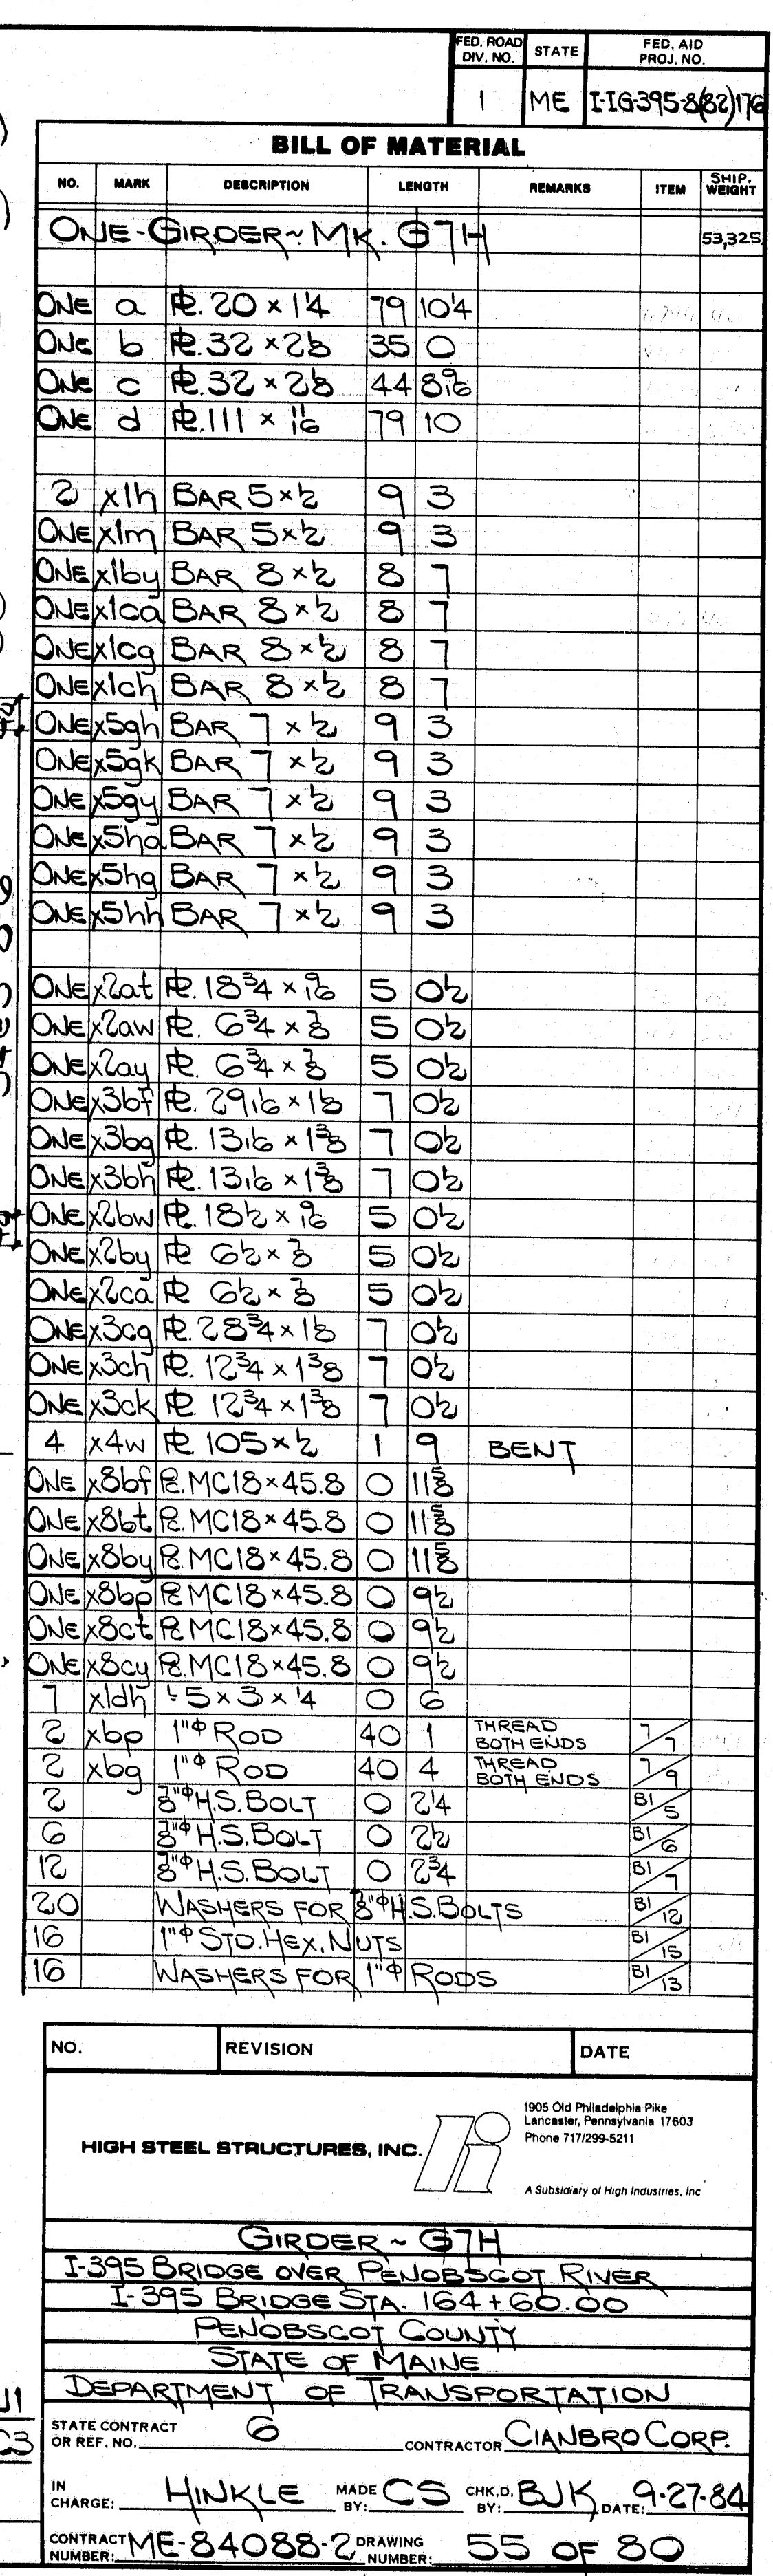 FED. ROAD DIV. NO. STATE FED. AID PROJ. NO.
1 ME I-IG-395-8(82)176
BILL OF MATERIAL
NO. MARK DESCRIPTION LENGTH REMARKS ITEM SHIP. WEIGHT
ONE-GIRDER~MK. G7H 53,325
ONE a ⅊. 20 × 1¼ 79 10¼
ONE b ⅊. 32 × 2⅛ 35 0
ONE c ⅊. 32 × 2⅛ 44 8 9/16
ONE d ⅊. 111 × 11/16 79 10
2 x1h BAR 5 × ½ 9 3
ONE x1m BAR 5 × ½ 9 3
ONE x1by BAR 8 × ½ 8 7
ONE x1ca BAR 8 × ½ 8 7
ONE x1cg BAR 8 × ½ 8 7
ONE x1ch BAR 8 × ½ 8 7
ONE x5gh BAR 7 × ½ 9 3
ONE x5gk BAR 7 × ½ 9 3
ONE x5gy BAR 7 × ½ 9 3
ONE x5ha BAR 7 × ½ 9 3
ONE x5hg BAR 7 × ½ 9 3
ONE x5hh BAR 7 × ½ 9 3
ONE x2at ⅊. 18¾ × 9/16 5 0½
ONE x2aw ⅊. 6¾ × ⅞ 5 0½
ONE x2ay ⅊. 6¾ × ⅞ 5 0½
ONE x3bf ⅊. 29 1/16 × 1⅛ 7 0½
ONE x3bg ⅊. 13 1/16 × 1⅜ 7 0½
ONE x3bh ⅊. 13 1/16 × 1⅜ 7 0½
ONE x2bw ⅊. 18½ × 9/16 5 0½
ONE x2by ⅊ 6½ × ⅞ 5 0½
ONE x2ca ⅊ 6½ × ⅞ 5 0½
ONE x3cg ⅊. 28¾ × 1⅛ 7 0½
ONE x3ch ⅊. 12¾ × 1⅜ 7 0½
ONE x3ck ⅊. 12¾ × 1⅜ 7 0½
4 x4w ⅊. 105 × ½ 1 9 BENT
ONE x8bf PC. MC18 × 45.8 0 11⅝
ONE x8bt PC. MC18 × 45.8 0 11⅝
ONE x8by PC. MC18 × 45.8 0 11⅝
ONE x8bp PC. MC18 × 45.8 0 9½
ONE x8ct PC. MC18 × 45.8 0 9½
ONE x8cy PC. MC18 × 45.8 0 9½
7 x1dh ∟5 × 3 × ¼ 0 6
2 xbp 1"Φ ROD 40 1 THREAD BOTH ENDS 7/7
2 xbg 1"Φ ROD 40 4 THREAD BOTH ENDS 7/9
2 ⅞"Φ H.S. BOLT 0 2¼ B1/5
6 ⅞"Φ H.S. BOLT 0 2½ B1/6
12 ⅞"Φ H.S. BOLT 0 2¾ B1/7
20 WASHERS FOR ⅞"Φ H.S. BOLTS B1/12
16 1"Φ STD. HEX. NUTS B1/15
16 WASHERS FOR 1"Φ RODS B1/13
NO. REVISION DATE
HIGH STEEL STRUCTURES, INC.
1905 Old Philadelphia Pike
Lancaster, Pennsylvania 17603
Phone 717/299-5211
A Subsidiary of High Industries, Inc
GIRDER ~ G7H
I-395 BRIDGE OVER PENOBSCOT RIVER
I-395 BRIDGE STA. 164+60.00
PENOBSCOT COUNTY
STATE OF MAINE
DEPARTMENT OF TRANSPORTATION
STATE CONTRACT OR REF. NO. 6 CONTRACTOR CIANBRO CORP.
IN CHARGE: HINKLE MADE BY: CS CHK.D. BY: BJK DATE: 9-27-84
CONTRACT NUMBER: ME-84088-2 DRAWING NUMBER: 55 OF 80